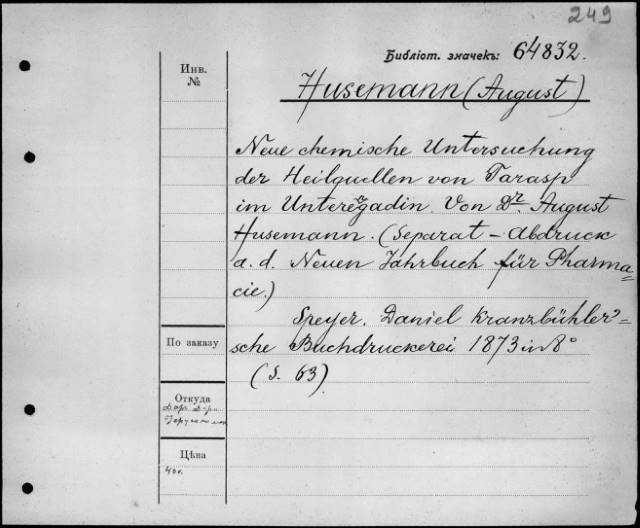 249
Библіот. значекъ: 64832.
Инв.
№
Husemann (August)
Neue chemische Untersuchung
der Heilquellen von Tarasp
im Unterengadin. Von Dr. August
Husemann. (Separat-Abdruck
a. d. Neuen Jahrbuch für Pharma=
cie.)
Speyer. Daniel Kranzbühler'=
sche Buchdruckerei 1873 in 8°
(S. 63)
По заказу
Откуда
Цѣна
40к.